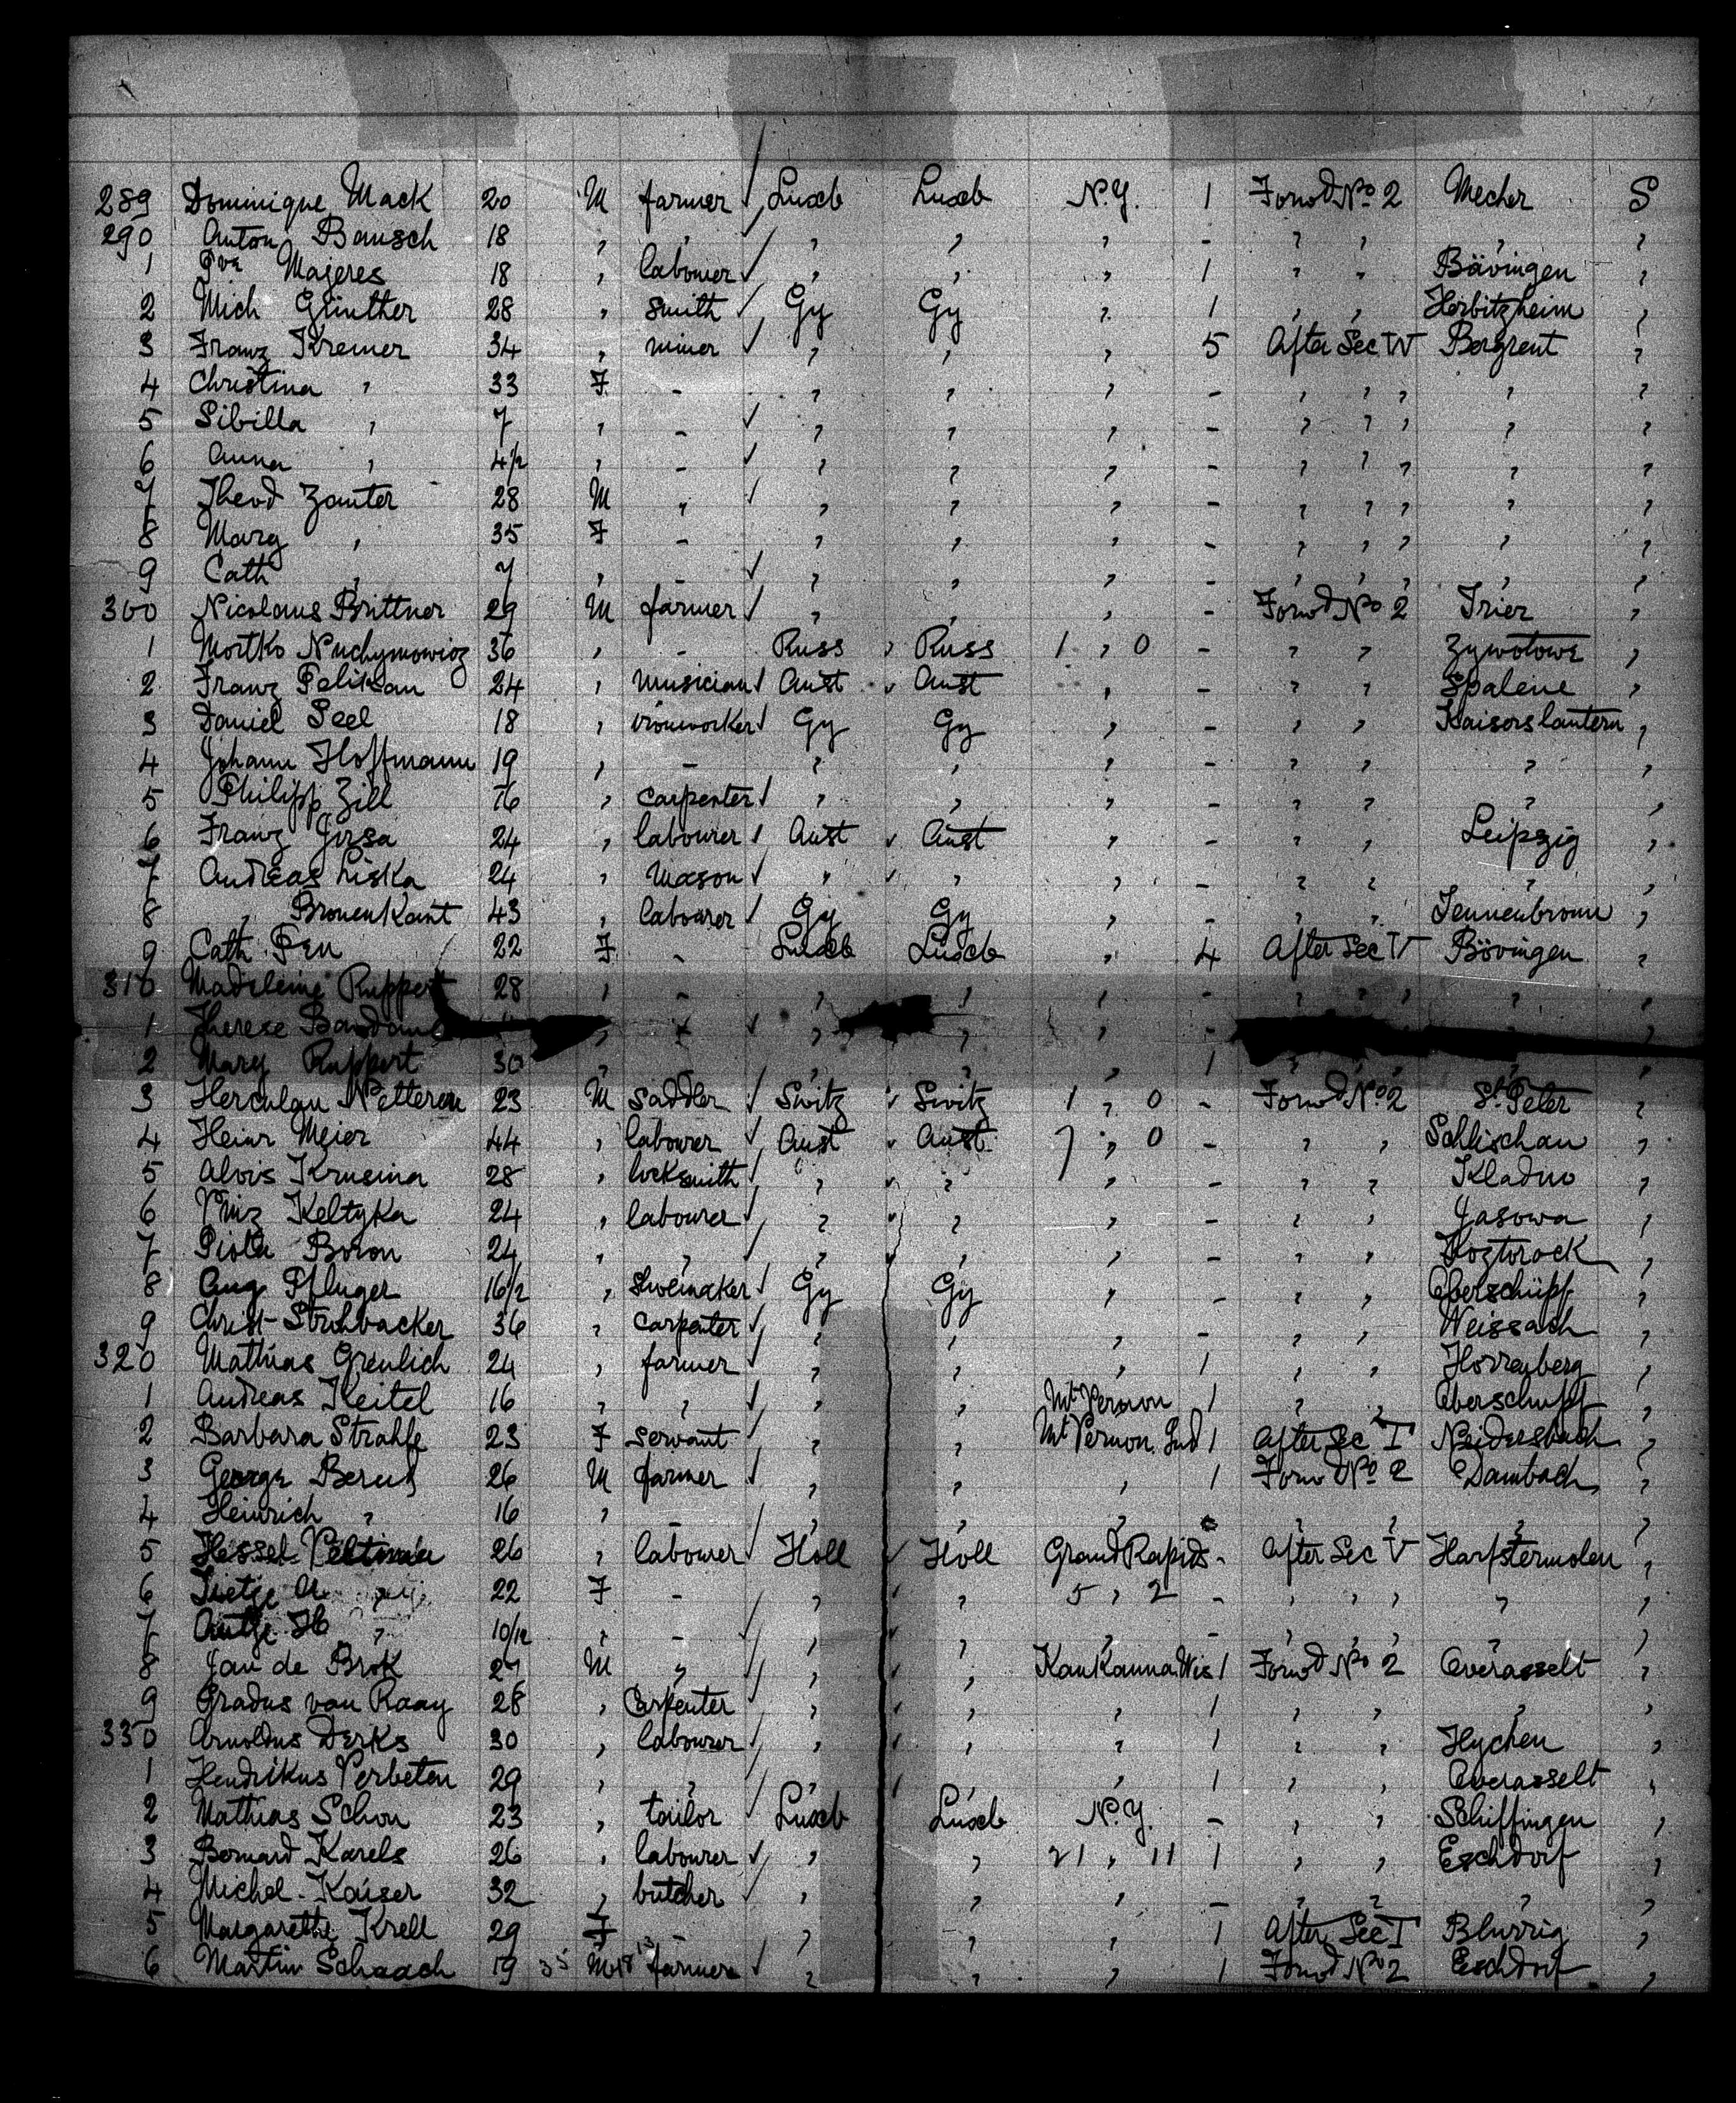 289 Dominique Mack 20 M farmer Luxb Luxb N.Y. 1 Forwd No 2 Mecher S
290 Anton Bausch 18 , , , , , - , , , ,
1 Majeres 18 , labourer , , , 1 , , Bävingen ,
2 Mich Günther 28 , smith Gy Gy , 1 , , Herbitzheim ,
3 Franz Kremer 34 , miner , , , 5 After Sec IV Bergrent ,
4 Christina , 33 F - , , , - , , , , ,
5 Sibilla , 7 , - , , , - , , , , ,
6 Anna , 4/12 , - , , , - , , , , ,
7 Theod Zanter 28 M , , , , - , , , , ,
8 Marg , 35 F - , , , - , , , , ,
9 Cath , 7 , - , , , - , , , , ,
300 Nicolaus Brittner 29 M farmer , , , - Forwd No 2 Trier ,
1 Mortko Nuchymowicz 36 , - Russ , Russ 1 , 0 - , , Zywotowe ,
2 Franz Pelikan 24 , musician Aust Aust , - , , Spaleine ,
3 Daniel Seel 18 , ironworker Gy Gy , - , , Kaiserslautern ,
4 Johann Hoffmann 19 , - , , , - , , , ,
5 Philipp Zill 16 , carpenter , , , - , , , ,
6 Franz Jirsa 24 , labourer Aust Aust , - , , Leipzig ,
7 Andreas Liska 24 , Mason , , , - , , , ,
8 , Bronenkant 43 , labourer Gy Gy , - , , Tennenbronn ,
9 Cath Feu 22 F - Luxb Luxb , 4 After Sec V Bövingen ,
310 Madeleine Ruppert 28 , - , , , - , , , , ,
1 Therese , , , , -
2 Mary Ruppert 30 , , , , 1 ,
3 Herculan Netteren 23 M Saddler Switz Switz 1 , 0 - Forwd No 2 St. Peter ,
4 Heinr Meier 44 , labourer Aust Aust 7 , 0 - , , Schlischau ,
5 Alois Krusina 28 , locksmith , , , - , , Kladno ,
6 Vinz Keltyka 24 , labourer , , , - , , Jasowa ,
7 Piotr Boron 24 , , , , , - , , Koztorock ,
8 Aug Pfluger 16/2 , Shoemaker Gy Gy , - , , Oberschüpf ,
9 Christ Strohbacker 36 , carpenter , , , - , , Weissach ,
320 Mathias Greulich 24 , farmer , , , 1 , , Horrenberg ,
1 Andreas Keitel 16 , , , , Mt Vernon 1 , , Oberschüpf ,
2 Barbara Strahle 23 F servant , , Mt Vernon Ind 1 After Sec I Neidersbach ,
3 George Berus 26 M farmer , , , 1 Forwd No 2 Dambach ,
4 Heinrich , 16 , - , , , , , , ,
5 Hessel Veltman 26 , labourer Holl Holl Grand Rapids - After Sec V Harfstermolen ,
6 Tietje 22 F - , , 5 , 2 - , , , , ,
7 Antje H , 10/12 , - , , , - , , , , ,
8 Jan de Brok 27 M , , , Kaukauna Wis 1 Forwd No 2 Overasselt ,
9 Gradus van Raay 28 , Carpenter , , , 1 , , , ,
330 Arnoldus Derks 30 , labourer , , , 1 , , Hychen ,
1 Hendrikus Verbeten 29 , , , , , 1 , , Overasselt ,
2 Mathias Schon 23 , tailor Luxb Luxb N.Y. - , , Schiffingen ,
3 Bernard Karels 26 , labourer , , 21 , 11 1 , , Eschdorf ,
4 Michel Kaiser 32 , butcher , , , - , , , ,
5 Margarethe Krell 29 F - , , , 1 After Sec I Blurrig ,
6 Martin Schaach 19 35 M 18 13 farmer , , , 1 Forwd No 2 Eschdorf ,